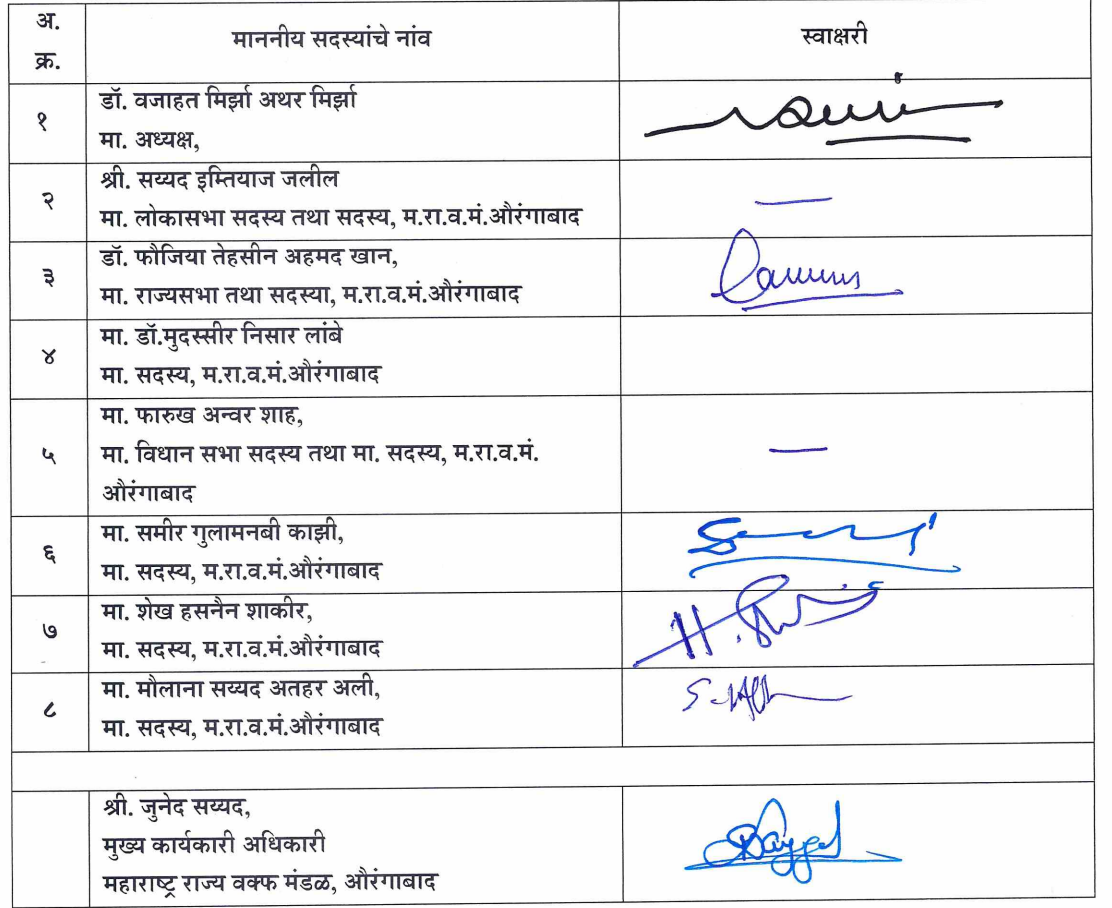 अ.
क्र.
माननीय सदस्यांचे नांव
स्वाक्षरी
१
डॉ. वजाहत मिर्झा अथर मिर्झा
मा. अध्यक्ष,
२
श्री. सय्यद इम्तियाज जलील
मा. लोकासभा सदस्य तथा सदस्य, म.रा.व.मं.औरंगाबाद
३
डॉ. फौजिया तेहसीन अहमद खान,
मा. राज्यसभा तथा सदस्या, म.रा.व.मं.औरंगाबाद
४
मा. डॉ.मुदस्सीर निसार लांबे
मा. सदस्य, म.रा.व.मं.औरंगाबाद
५
मा. फारुख अन्वर शाह,
मा. विधान सभा सदस्य तथा मा. सदस्य, म.रा.व.मं.
औरंगाबाद
६
मा. समीर गुलामनबी काझी,
मा. सदस्य, म.रा.व.मं.औरंगाबाद
७
मा. शेख हसनैन शाकीर,
मा. सदस्य, म.रा.व.मं.औरंगाबाद
८
मा. मौलाना सय्यद अतहर अली,
मा. सदस्य, म.रा.व.मं.औरंगाबाद
श्री. जुनेद सय्यद,
मुख्य कार्यकारी अधिकारी
महाराष्ट्र राज्य वक्फ मंडळ, औरंगाबाद